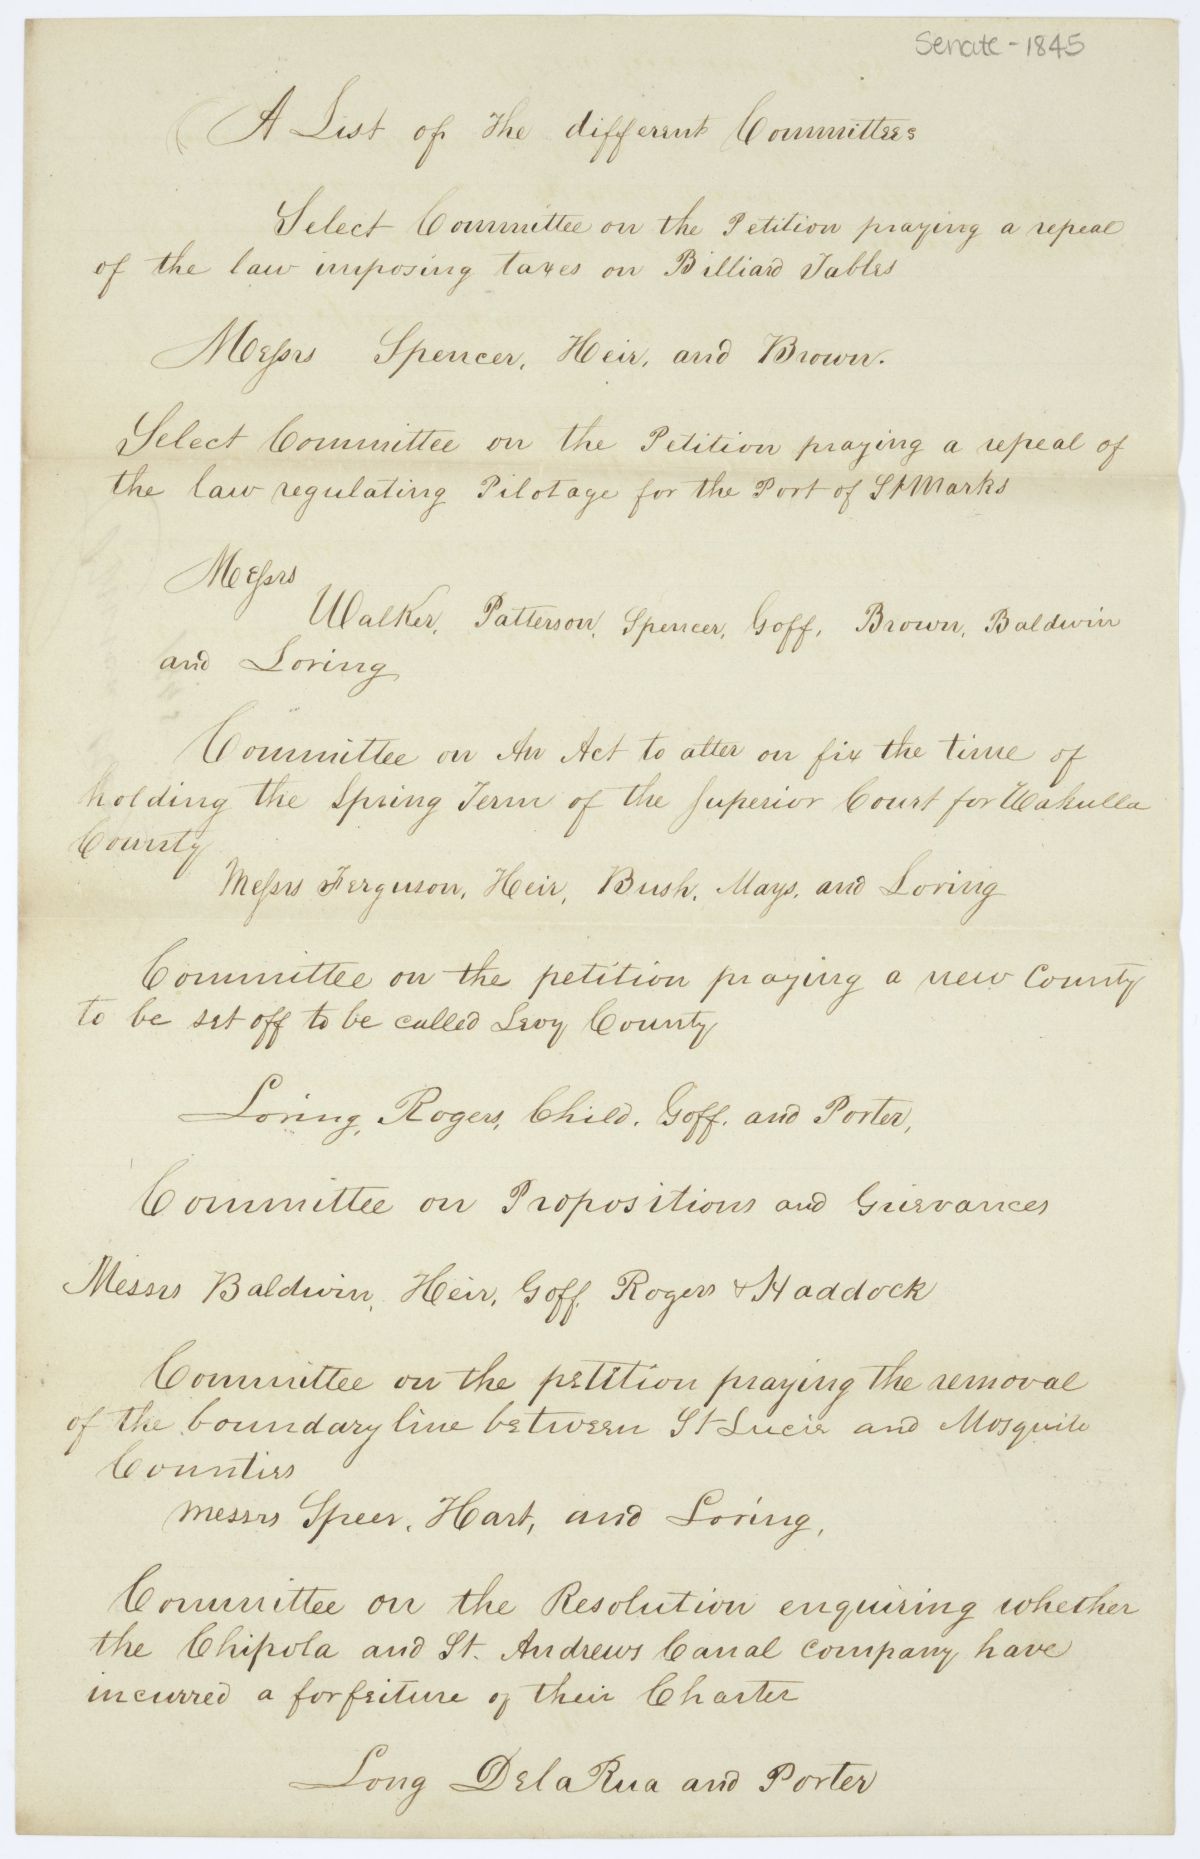 Senate - 1845
A List of the different Committees
Select Committee on the Petition praying a repeal
of the law imposing taxes on Billiard Tables
Messrs Spencer, Heir, and Brown.
Select Committee on the Petition praying a repeal of
the law regulating Pilotage for the Port of St Marks
Messrs
Walker, Patterson, Spencer, Goff, Brown, Baldwin
and Loring
Committee on An Act to alter on fix the time of
holding the Spring Term of the Superior Court for Wakulla
County
Messrs Ferguson, Heir, Bush, Mays, and Loring
Committee on the petition praying a new County
to be set off to be called Levy County
Loring, Rogers, Child, Goff, and Porter,
Committee on Propositions and Grievances
Messrs Baldwin, Heir, Goff, Rogers & Haddock
Committee on the petition praying the removal
of the boundary line between St Lucie and Mosquito
Counties
messrs Speer, Hart, and Loring,
Committee on the Resolution enquiring whether
the Chipola and St. Andrews Canal company have
incurred a forfeiture of their Charter
Long DelaRua and Porter